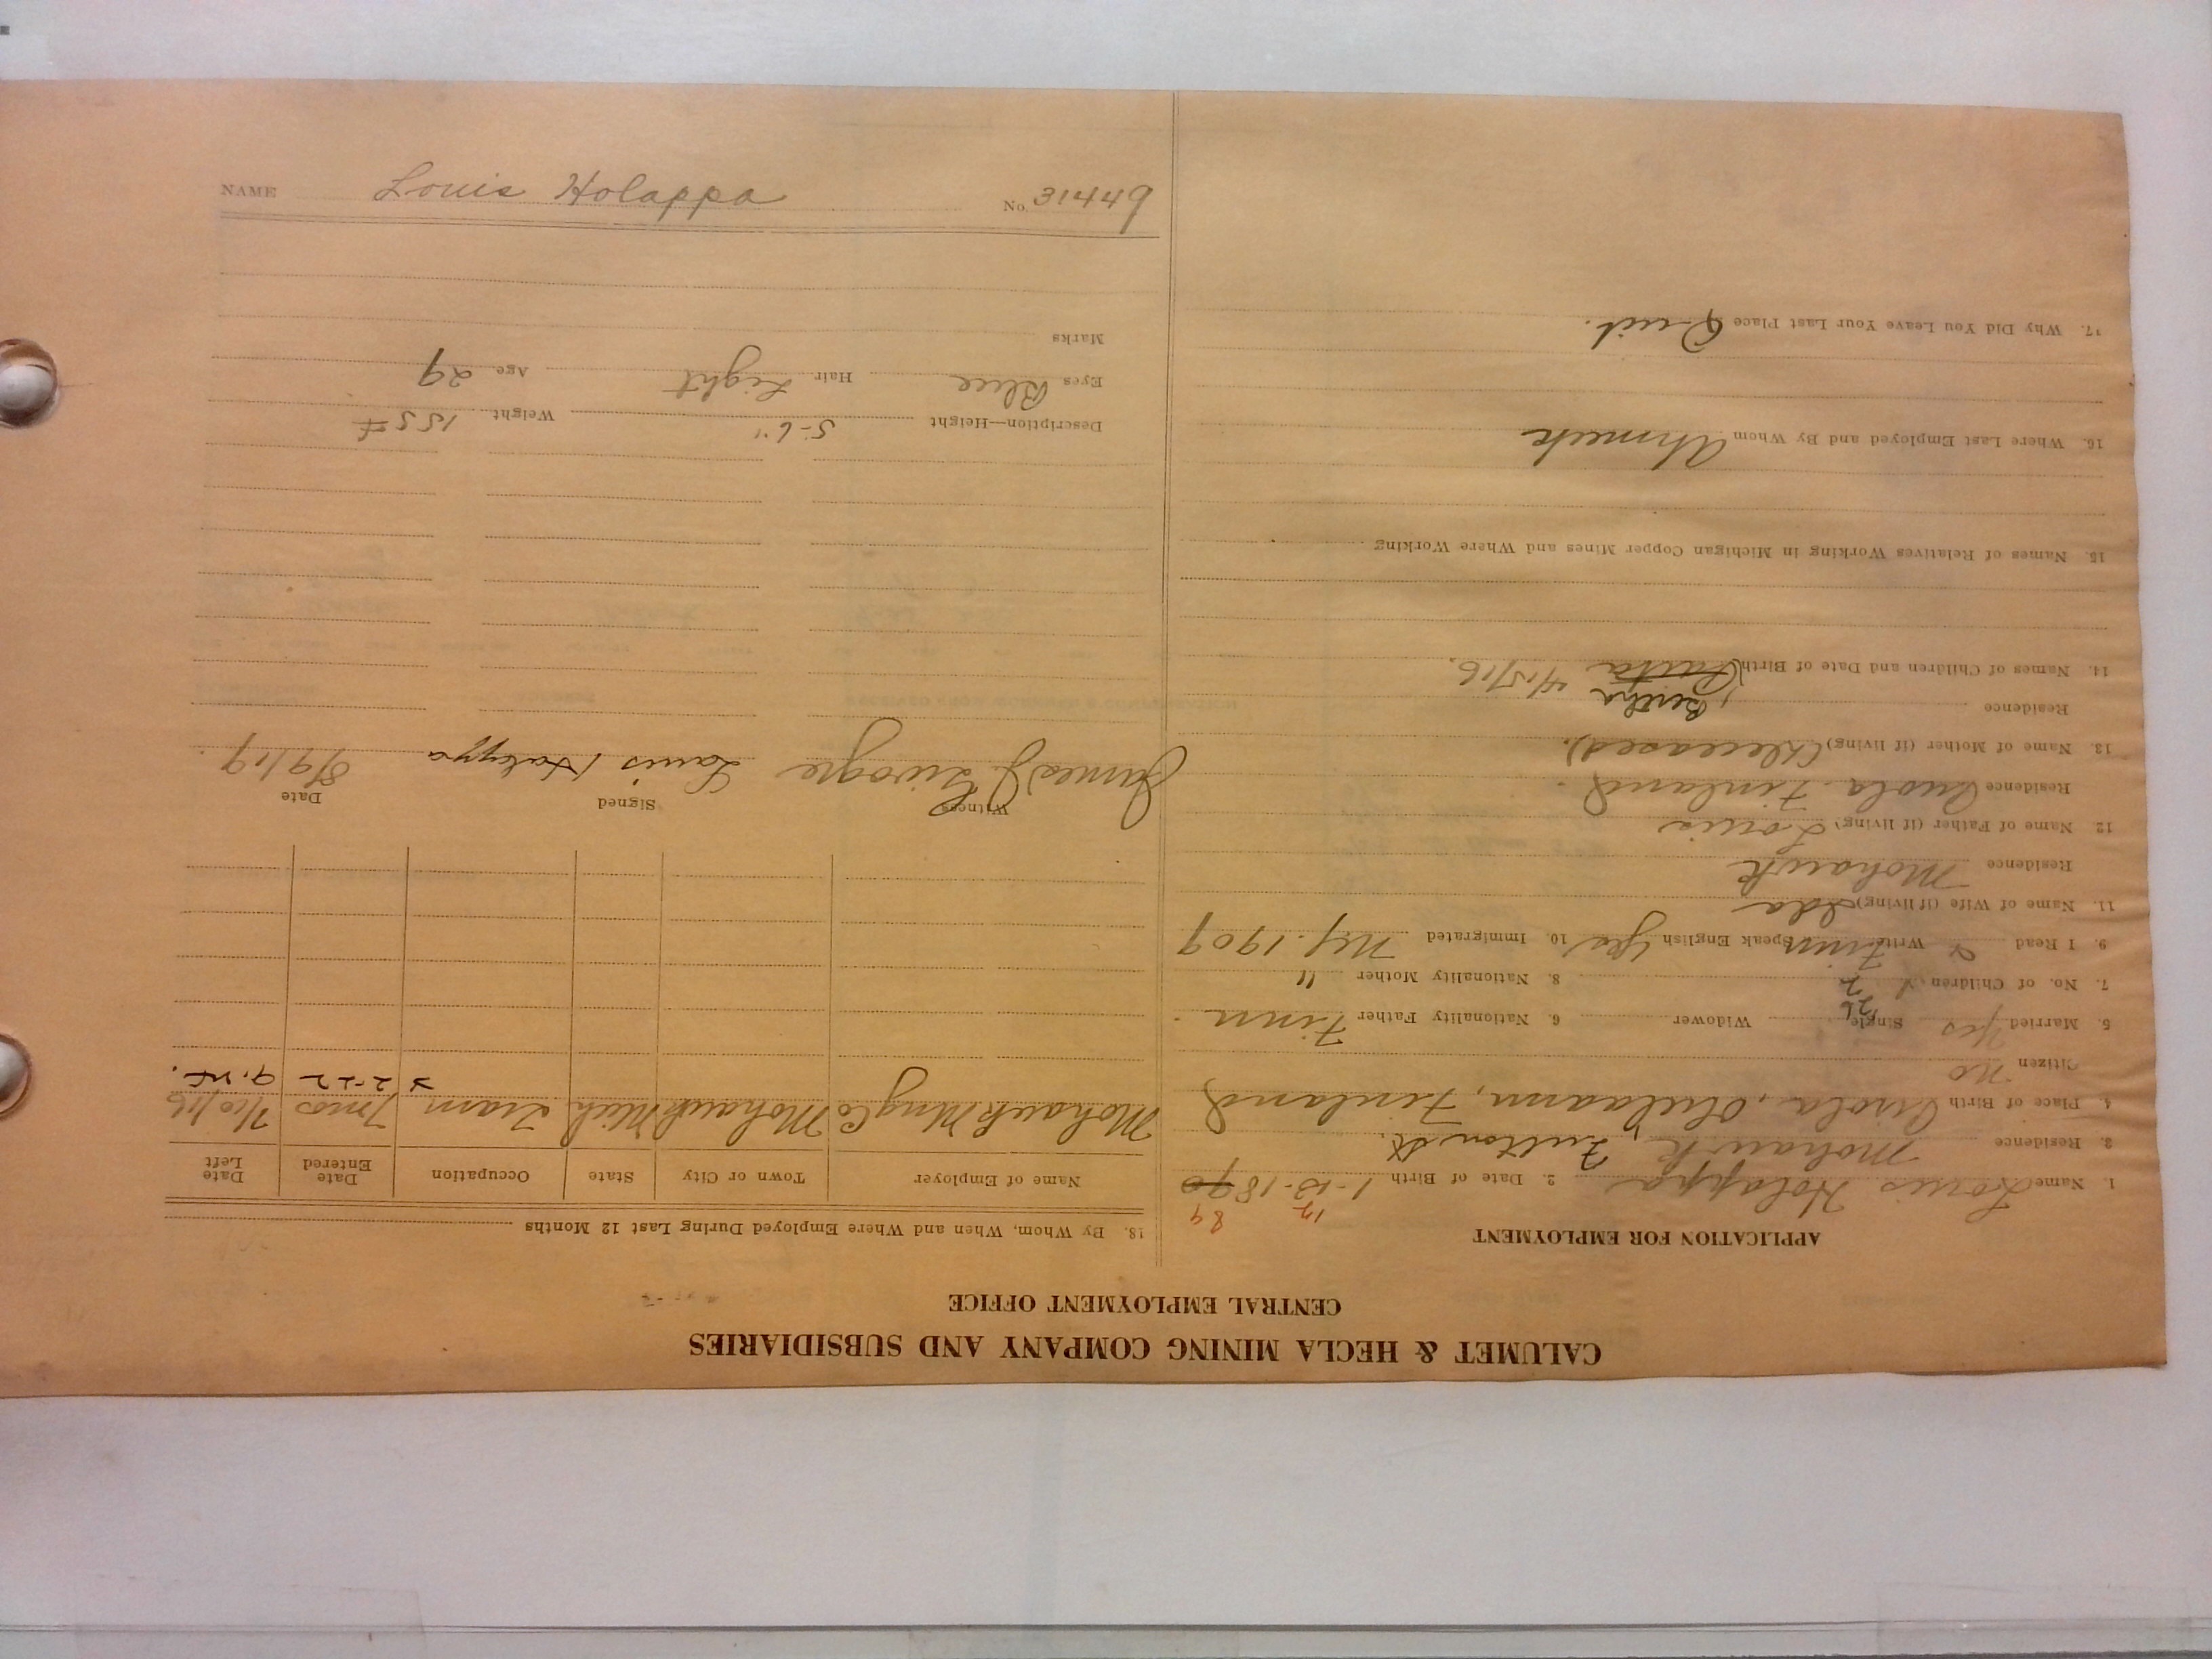 CALUMET & HECLA MINING COMPANY AND SUBSIDIARIES
CENTRAL EMPLOYMENT OFFICE
APPLICATION FOR EMPLOYMENT
12 89
1. Name Louis Holappa 2. Date of Birth 1-13-1890
3. Residence Mohawk, Fulton St.
4. Place of Birth Finland
Citizen no
5. Married Yes Single Widower 6. Nationality Father Finn
7. No. of Children 8. Nationality Mother "
9. I Read & Write Finn Speak English Yes 10. Immigrated 1909
11. Name of Wife (if living) Ida
Residence Mohawk
12. Name of Father (if living) Louis
Residence Finland.
13. Name of Mother (if living) (Deceased).
Residence
Bertha
14. Names of Children and Date of Birth 4/15/16.
15. Names of Relatives Working in Michigan Copper Mines and Where Working
16. Where Last Employed and By Whom Ahmeek
17. Why Did You Leave Your Last Place Quit.
18. By Whom, When and Where Employed During Last 12 Months
Name of Employer Town or City State Occupation Date Entered Date Left
Mohawk Mng Co Mohawk Mich Tram 7 mos 7/10/16
2-22
Witness Signed Date
James J. Louis Holappa 8/9/19.
Description—Height 5-6" Weight 155#
Eyes Blue Hair Light Age 29
Marks
NAME Louis Holappa No. 31449